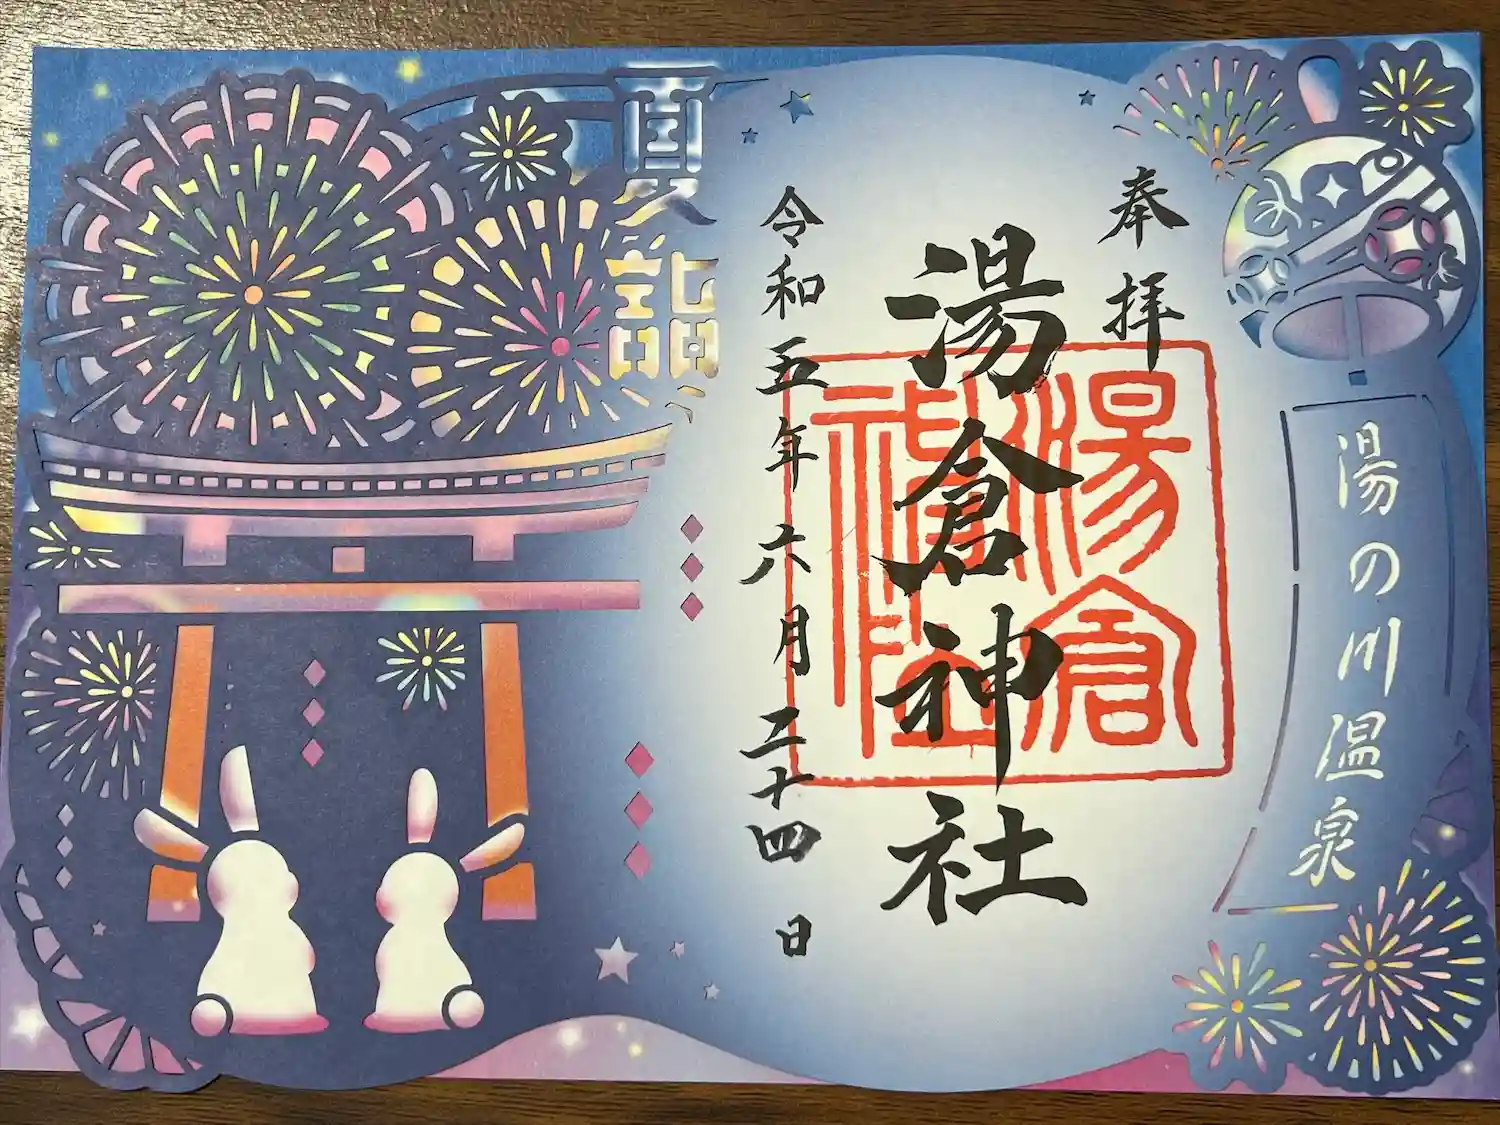 湯の川温泉
奉拝
湯倉神社
湯倉神社
令和五年六月二十四日
夏詣